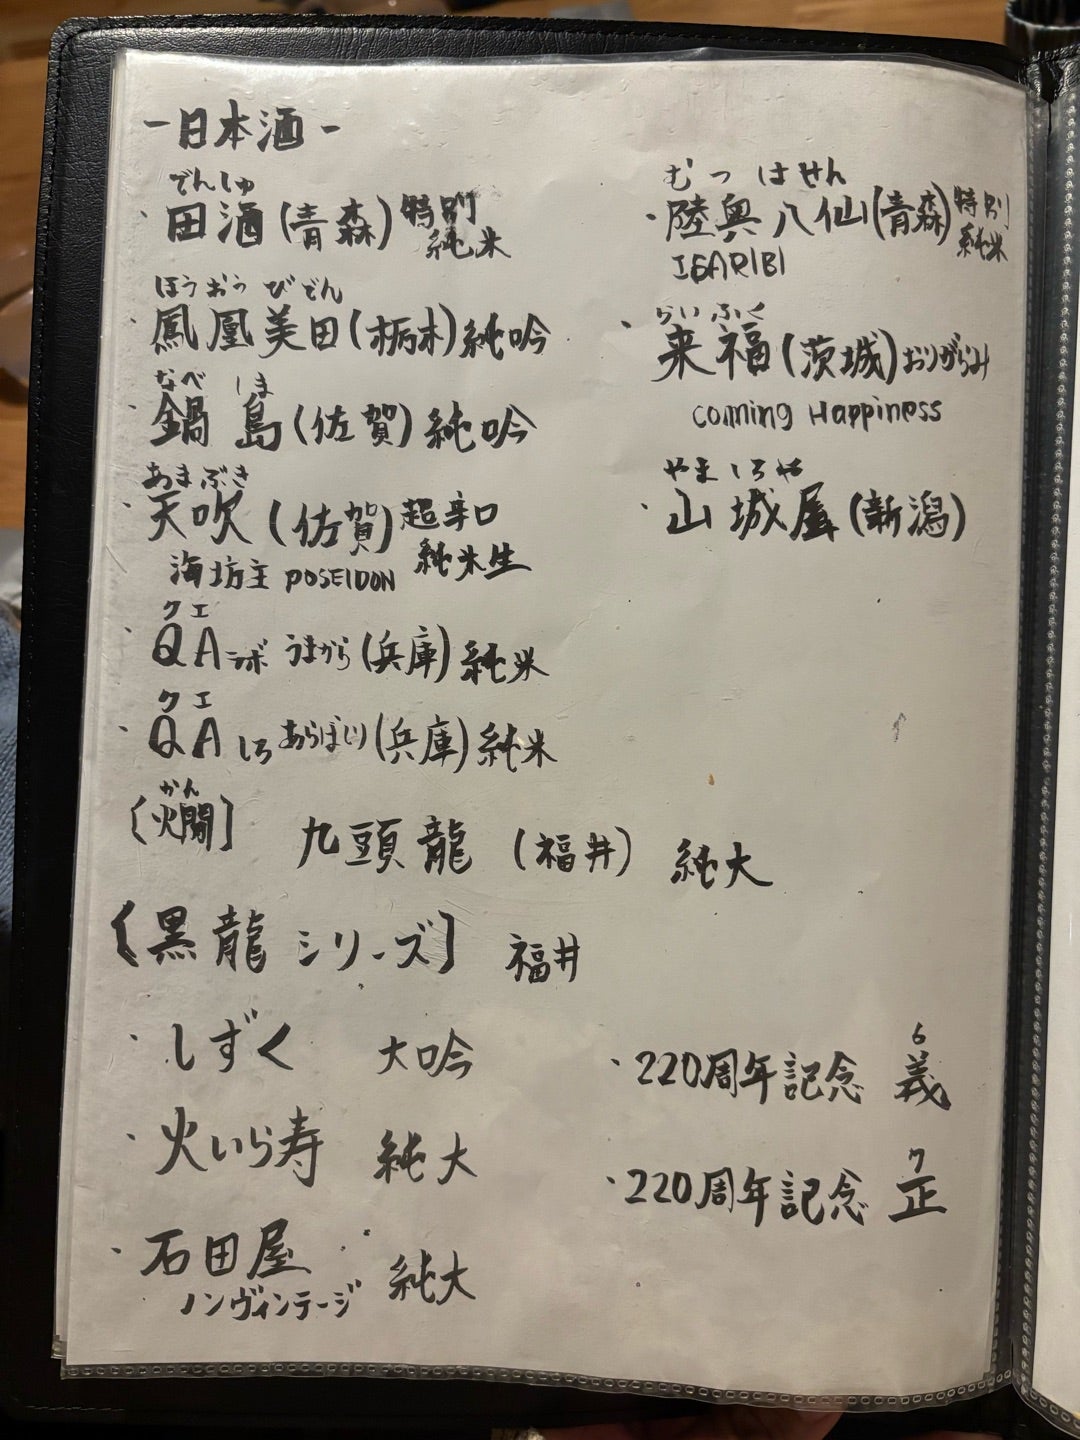 -日本酒-
でんしゅ
・田酒(青森)特別純米
ほうおうびでん
・鳳凰美田(栃木)純吟
なべしま
・鍋島(佐賀)純吟
あまぶき
・天吹(佐賀)超辛口純米生
海坊主 POSEIDON
クエ
・QAラボ うまから(兵庫)純米
クエ
・QA しろ あらばしり(兵庫)純米
むつはせん
・陸奥八仙(青森)特別純米
ISARIBI
らいふく
・来福(茨城)おりがらみ
Coming Happiness
やましろや
・山城屋(新潟)
かん
[燗] 九頭龍(福井)純大
[黒龍シリーズ] 福井
・しずく 大吟
・火いら寿 純大
・石田屋 純大
ノンヴィンテージ
・220周年記念 義
・220周年記念 正